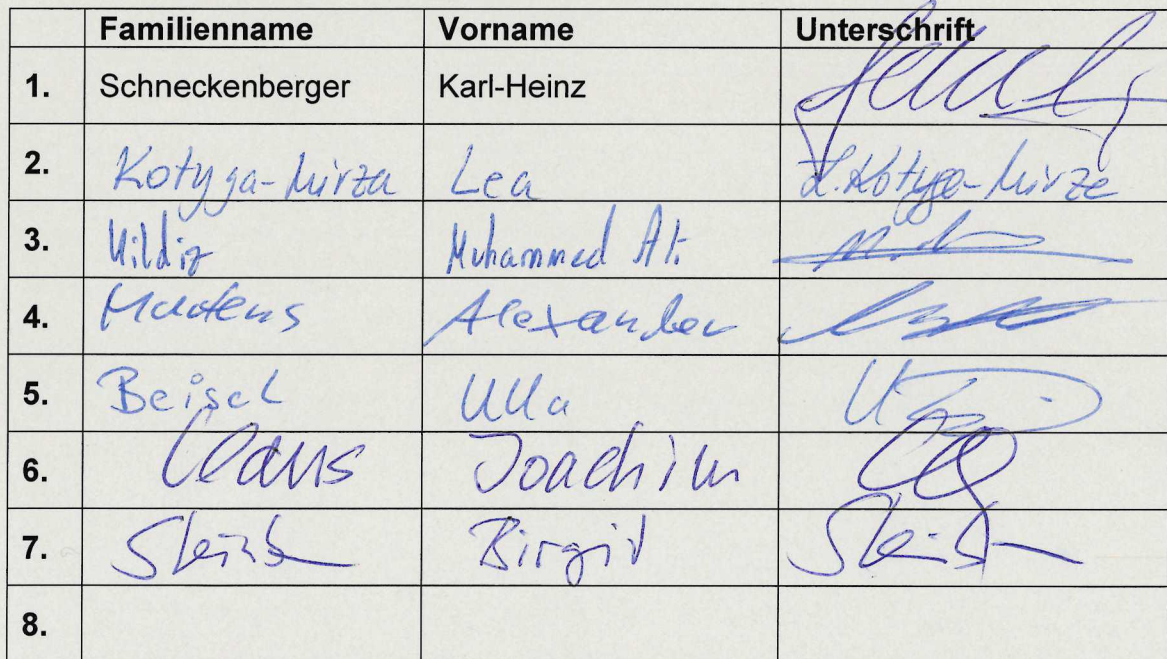 Familienname Vorname Unterschrift
1. Schneckenberger Karl-Heinz
2. Kotyga-Mirza Lea L. Kotyga-Mirza
3. Yildiz Muhammed At.
4. Martens Alexander
5. Beisel Ulla
6. Claus Joachim
7. Birgit
8.